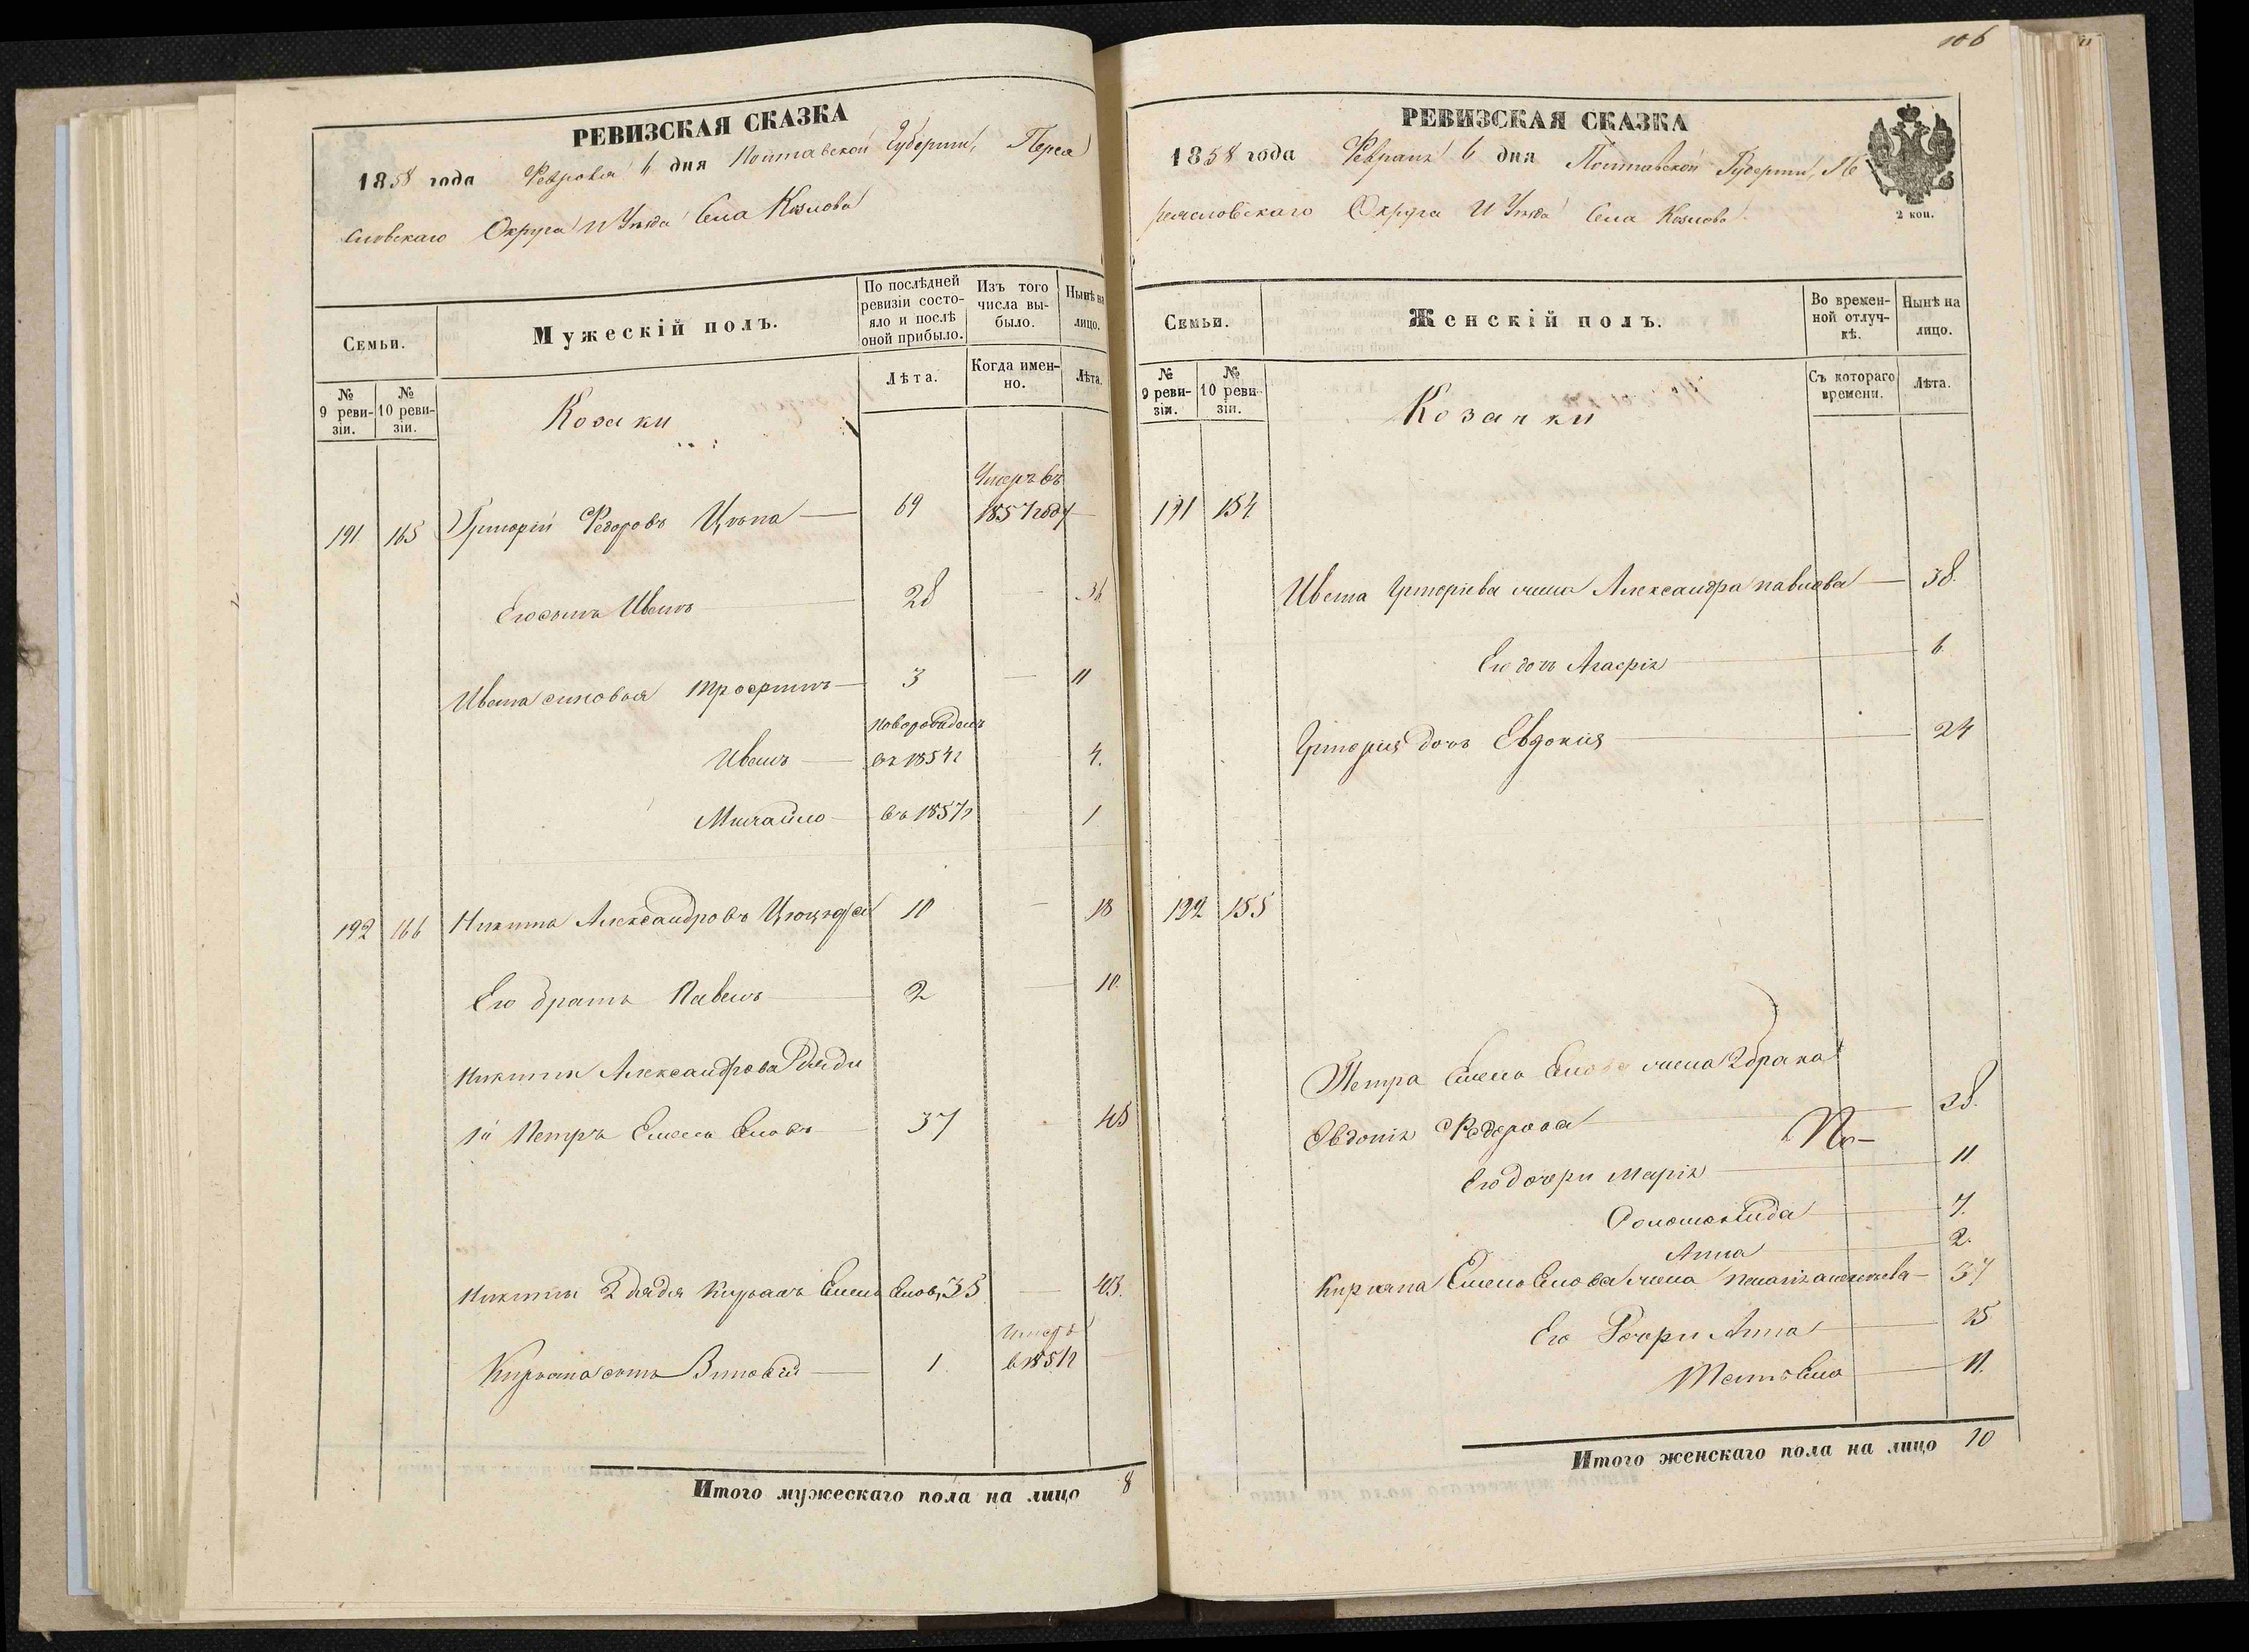 РЕВИЗСКАЯ СКАЗКА
1858 года Февраля 6 дня Полтавской Губернии, Переа
словскаго Округа и Уезда Села Козлова
Семьи.
Мужескій полъ.
По послѣдней ревизіи состояло и послѣ оной прибыло.
Изъ того числа выбыло.
Нынѣ на лицо.
№ 9 ревизіи.
№ 10 ревизіи.
Козаки
Лѣта.
Когда именно.
Лѣта.
191 165 Григорій Федоровъ 69 Умеръ въ 1857 году
Его сынъ Иванъ 28 36
Ивана сыновья Трофимъ 3 11
новорожденъ
Иванъ въ 1854 г 4.
Михайло въ 1857 г 1
192 166 Никита Александровъ 10 18
Его братъ Павелъ 2 10.
Никиты Александрова дяди
1й Петръ Емельяновъ 37 45
Никиты 2 дядя Кирьанъ Емельяновъ 35 43.
Кирьана сынъ Зиновій 1 умеръ в 1851 г
Итого мужескаго пола на лицо 8
106
РЕВИЗСКАЯ СКАЗКА
1858 года Февраля 6 дня Полтавской Губернии, Пе
реясловскаго Округа и Уезда Села Козлова
2 коп.
Семьи.
Женскій полъ.
Во временной отлучкѣ.
Нынѣ на лицо.
№ 9 ревизіи.
№ 10 ревизіи.
Козачки
Съ котораго времени.
Лѣта.
191 154
Ивана Григоріева жена Александра Павлова 38.
Его дочь Агафія 6
Григорія дочь Евдокія 24
192 155
Петра Емельянова жена 2 брака
Евдокія Федорова 28.
Его дочери Марія 11
7.
Анна 2.
Кирьана Емельянова жена 37
Его дочери Анна 15
Татьяна 11.
Итого женскаго пола на лицо 10